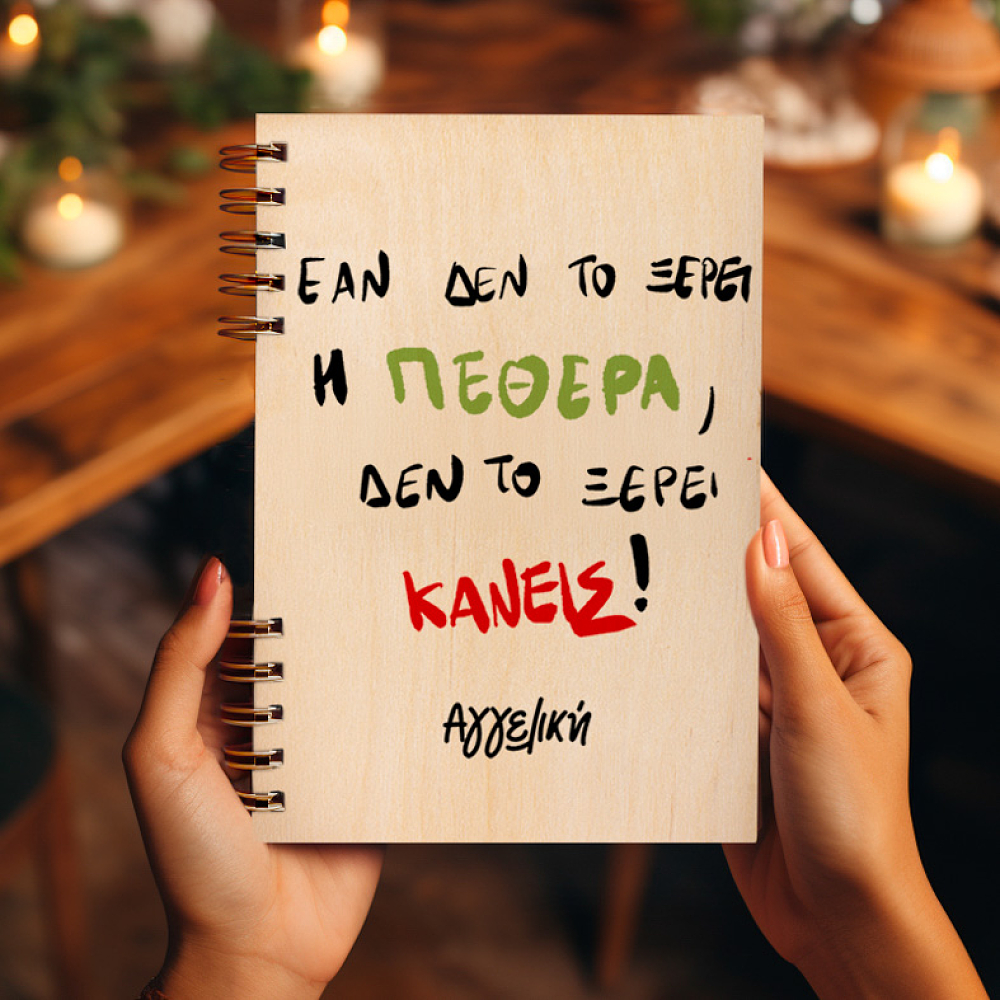 ΕΑΝ ΔΕΝ ΤΟ ΞΕΡΕΙ
Η ΠΕΘΕΡΑ,
ΔΕΝ ΤΟ ΞΕΡΕΙ
ΚΑΝΕΙΣ!
Αγγελική